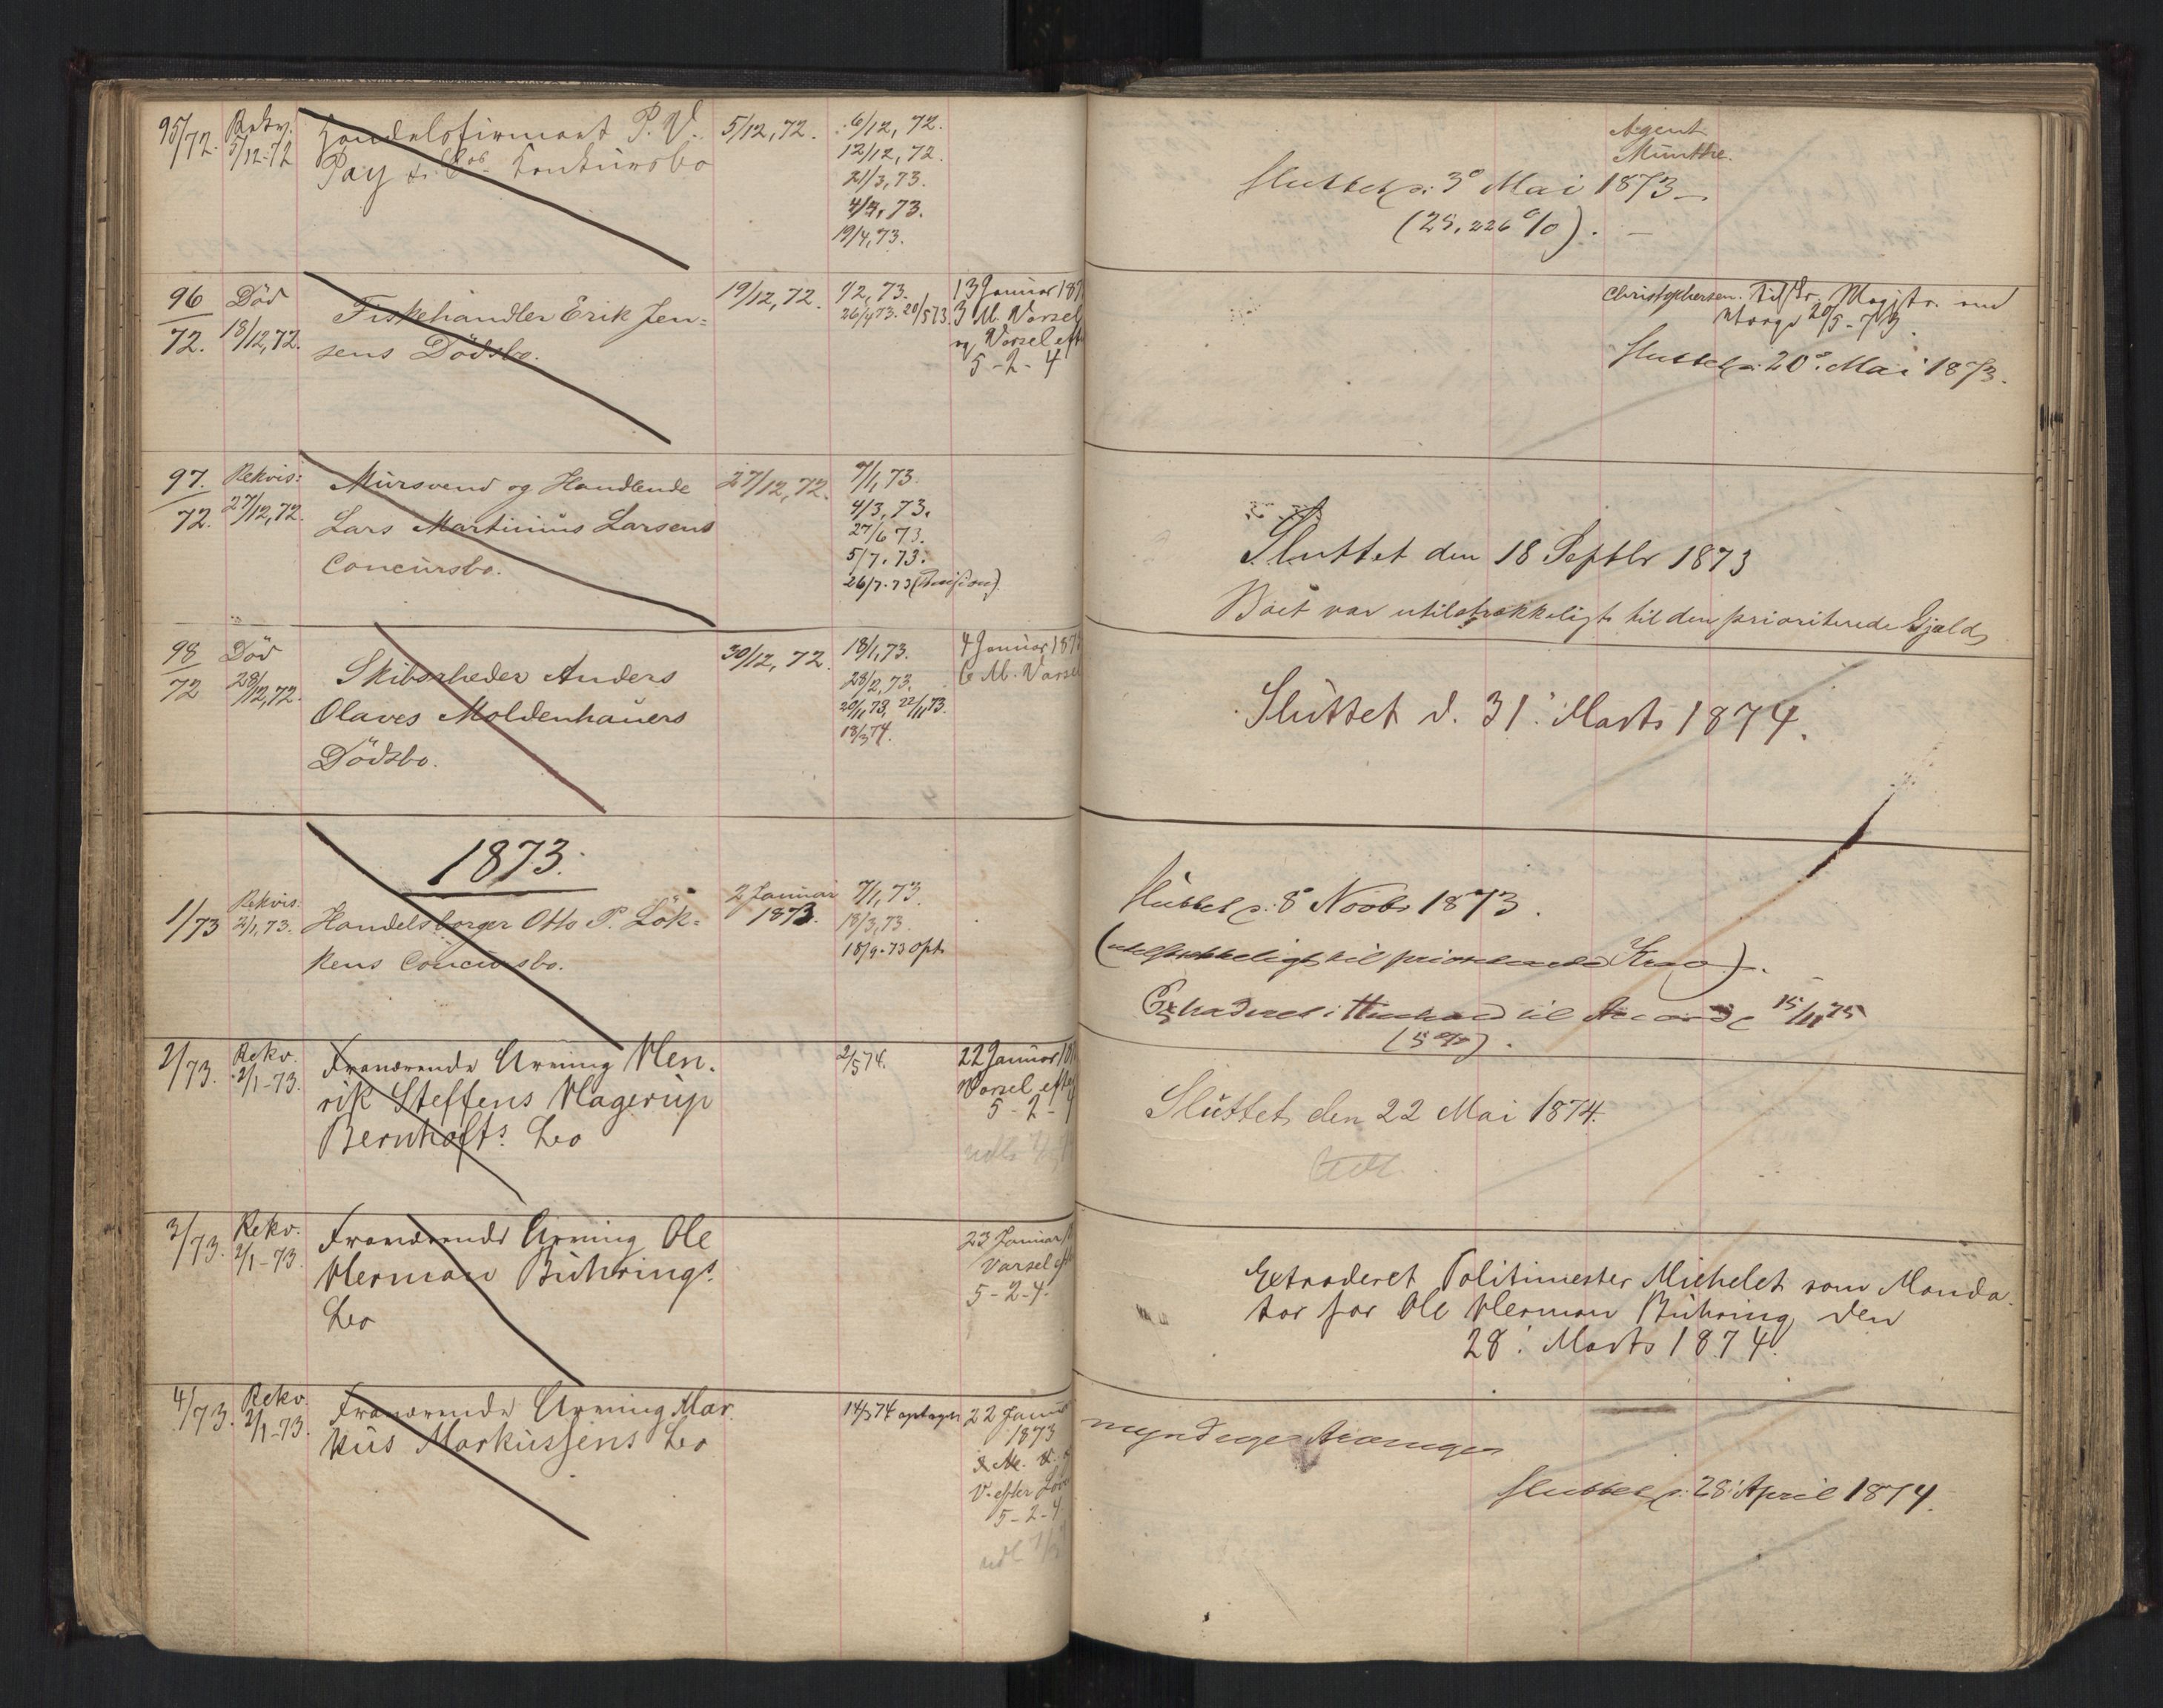 95/72. Rekv. 5/12-72 Handelsfirmaet P. V. 5/12, 72. 6/12, 72. Agent
Pay & Cos. Konkursbo 12/12, 72. Münthe.
21/3, 73. Sluttet d: 3die Mai 1873
4/4, 73. (25,226 %).
19/4, 73.
96/72. Död 18/12, 72. Fiskehandler Erik Jen= 19/12, 72. 1/2, 73. 13 Januar 187
sens Dödsbo. 26/4 73. 20/5 73 3 M. Varsel
og Varsel eft
5-2-4
Christophersen. Magistr.
20/5-73.
Sluttet d: 20de Mai 1873.
97./72. Rekvis: 27/12, 72. Mürsvend og Handlende 27/12, 72. 7/1, 73.
Lars Martinius Larsens 4/3, 73.
Concursbo. 27/6 73.
5/7. 73.
26/7. 73
Sluttet den 18 Septbr 1873
Boet var utilstrækkeligt til den prioriterede Gjæld
98/72 Död 28/12, 72. Skibsrheder Anders 30/12, 72. 18/1, 73. 4 Januar 187
Olaves Moldenhauers 28/2, 73. 6 M. Varsel
Dödsbo. 20/11 73, 22/11 73.
13/3 74.
Sluttet d. 31. Marts 1874.
1873.
1/73 Rekvis. 2/1, 73. Handelsborger Otto P. Lök= 2 Januar 1873. 7/1, 73.
kens Concursbo. 18/3, 73.
18/9-73 opt.
Sluttet d: 8 Novbr 1873.
(utilstrækkeligt til prioriterede Krav).
Extraderet i Henhold til Accord 15/11 75
(5 %).
2/73. Rekv. 2/1-73. Fraværende Arving Hen. 2/5 74. 22 Januar
rik Steffens Hagerup Varsel efter
Bernhofts. Bo 5-2-4
Sluttet den 22 Mai 1874.
Udl.
3/73. Rekv. 2/1-73. Fraværende Arving Ole 23 Januar
Herman Bührings. Varsel eft
Bo 5-2-4.
Extraderet Politimester Michelet som Manda
tar for Ole Herman Bühring den
28. Marts 1874.
4/73. Rekv. 2/1-73. Fraværende Arving Mar. 14/3 74 optaget 22 Janu
kus Markussens Bo 1873
V. efter Lov
5-2-4
udl.
myndige Arvinger
Sluttet d: 28. April 1874.